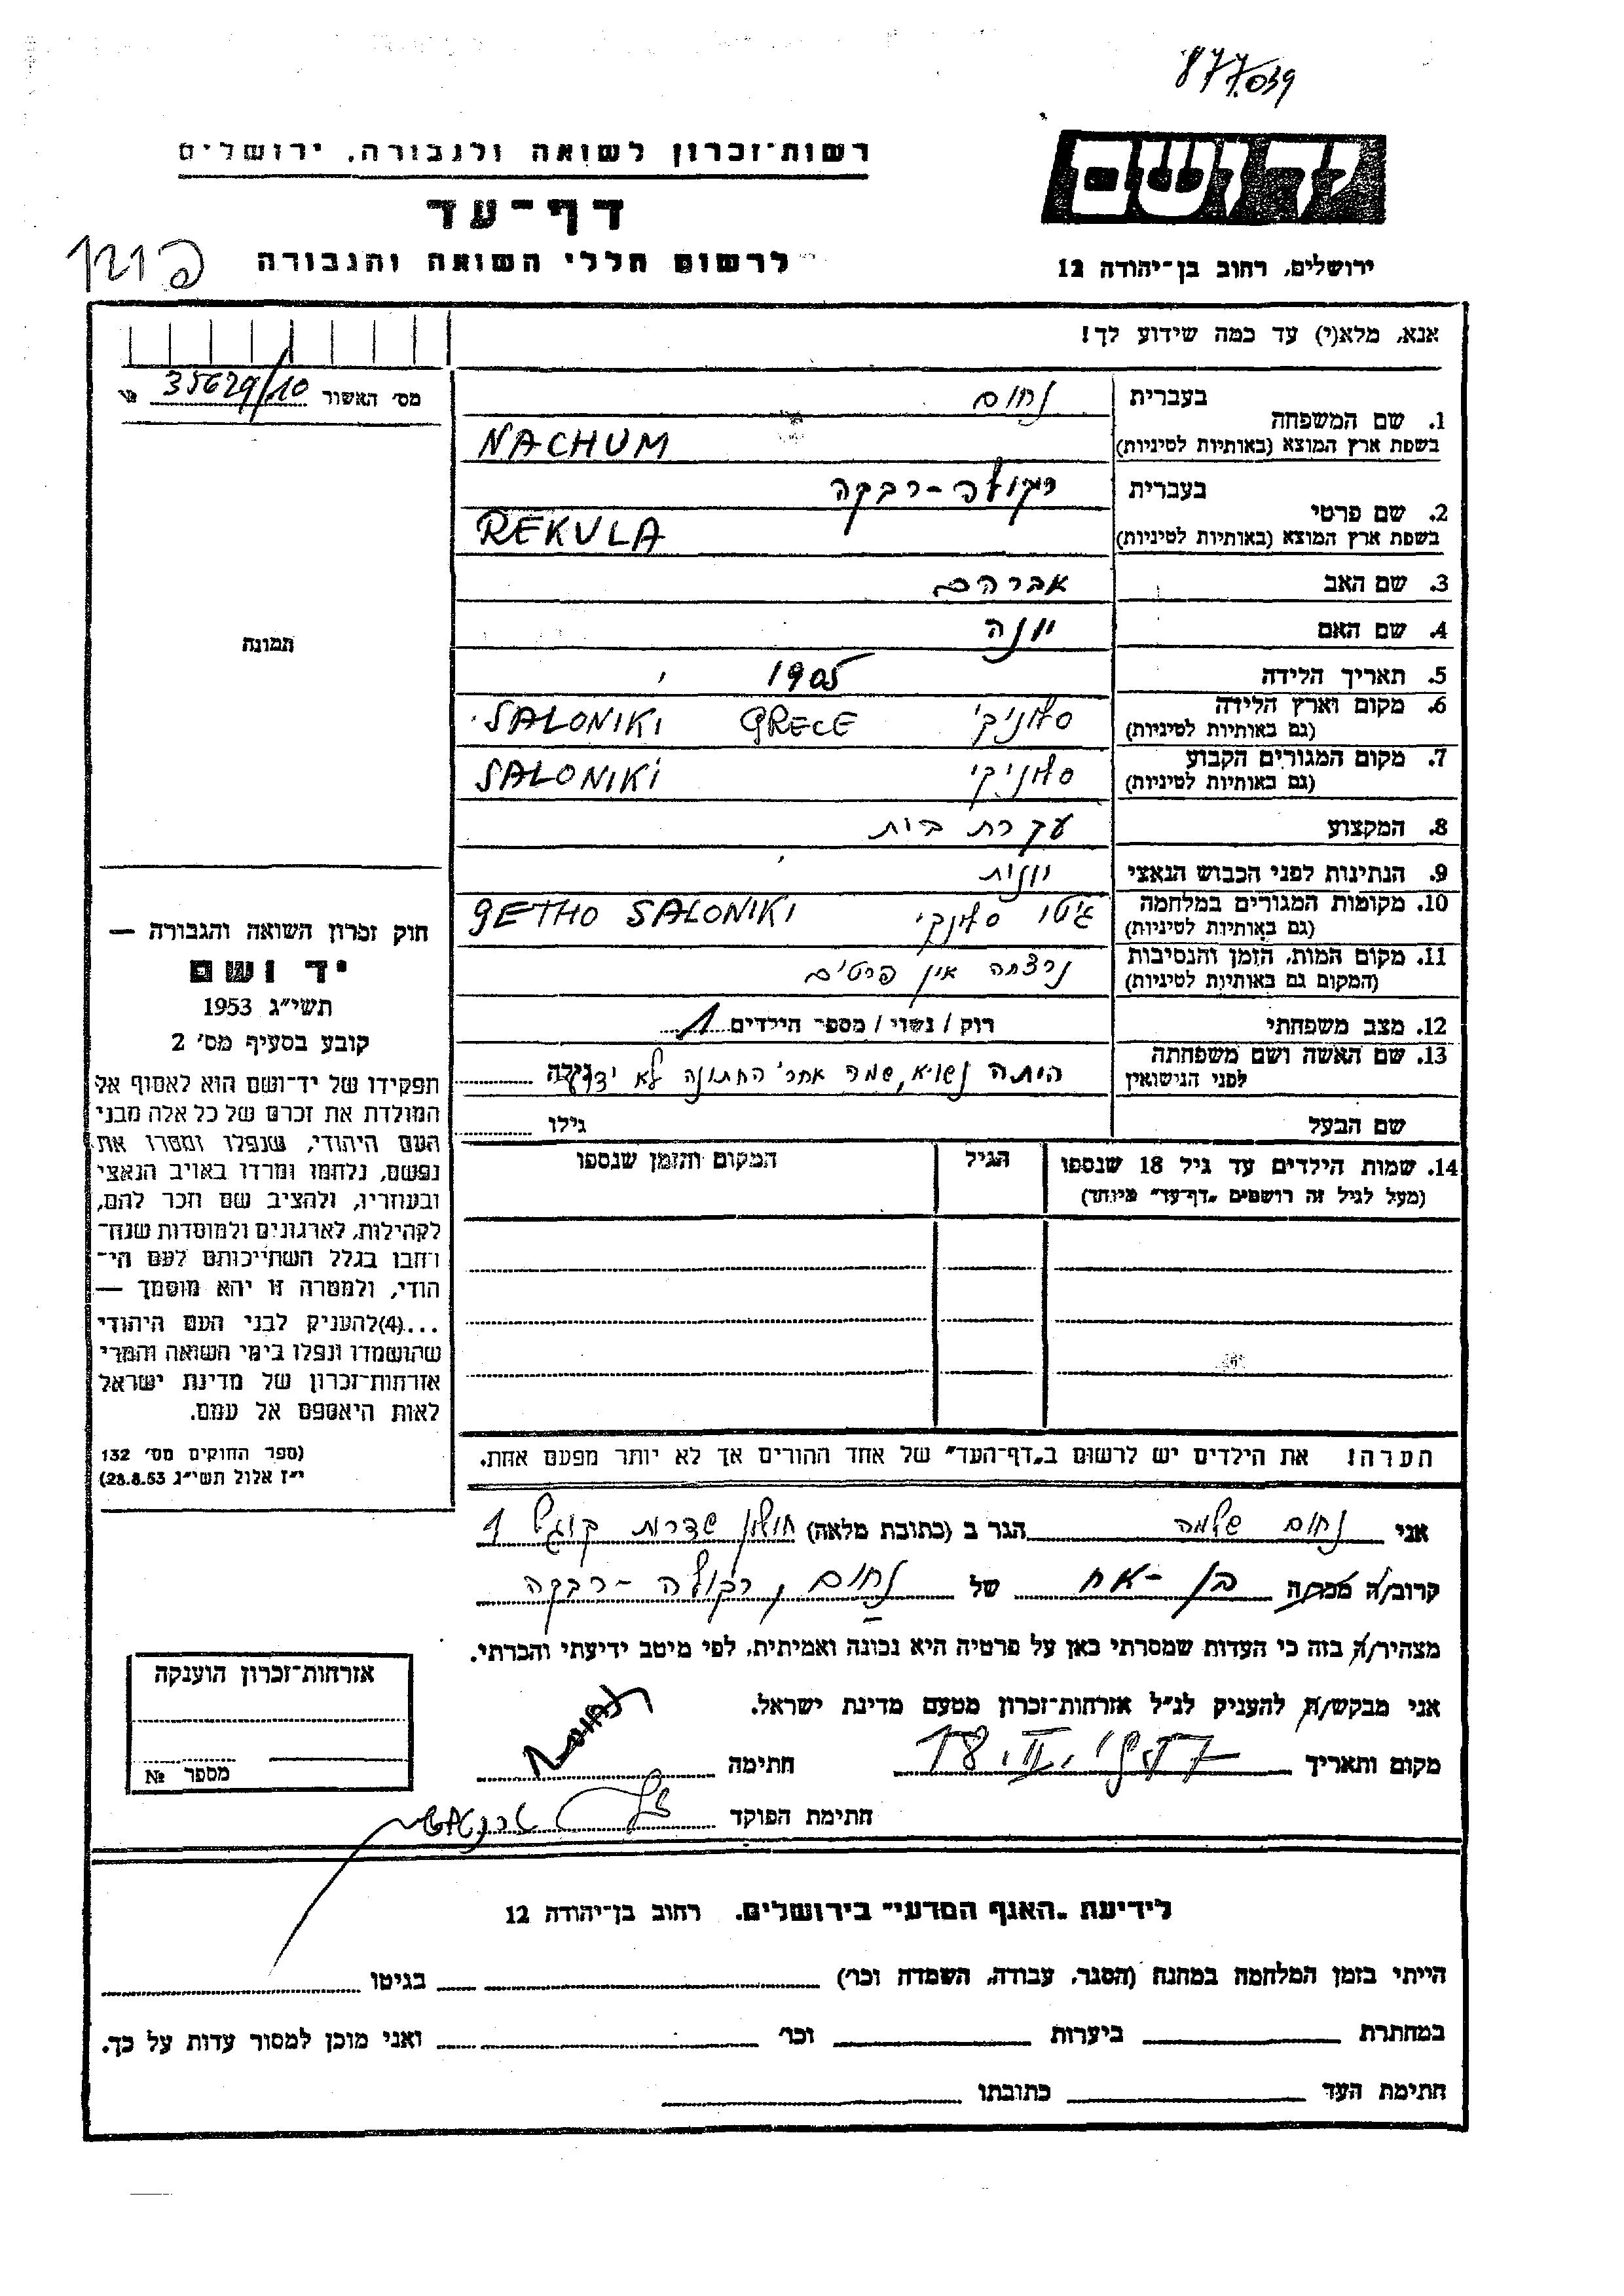 877.039
רשות־זכרון לשואה ולגבורה, ירושלים
יד ושם
דף־עד
לרשום חללי השואה והגבורה
ירושלים, רחוב בן־יהודה 12
אנא, מלא(י) עד כמה שידוע לך!
מס' האשור 35629/10 №
1. שם המשפחה בעברית נחום
בשפת ארץ המוצא (באותיות לטיניות) NACHUM
2. שם פרטי בעברית רקולה - רבקה
בשפת ארץ המוצא (באותיות לטיניות) REKULA
3. שם האב אברהם
4. שם האם יונה
5. תאריך הלידה 1905
6. מקום וארץ הלידה (גם באותיות לטיניות) סלוניקי GRECE SALONIKI
7. מקום המגורים הקבוע (גם באותיות לטיניות) סלוניקי SALONIKI
8. המקצוע עקרת בית
9. הנתינות לפני הכבוש הנאצי יוונית
10. מקומות המגורים במלחמה (גם באותיות לטיניות) גיטו סלוניקי GETHO SALONIKI
11. מקום המות, הזמן והנסיבות (המקום גם באותיות לטיניות) נרצחה אין פרטים
12. מצב משפחתי רוק / נשוי / מספר הילדים 1
13. שם האשה ושם משפחתה לפני הנישואין היתה נשואה, שמה אחרי החתונה לא ידוע גילה
שם הבעל גילו
14. שמות הילדים עד גיל 18 שנספו (מעל לגיל זה רושמים „דף־עד" מיוחד) הגיל המקום והזמן שנספו
תמונה
חוק זכרון השואה והגבורה —
יד ושם
תשי"ג 1953
קובע בסעיף מס' 2
תפקידו של יד־ושם הוא לאסוף אל
המולדת את זכרם של כל אלה מבני
העם היהודי, שנפלו ומסרו את
נפשם, נלחמו ומרדו באויב הנאצי
ובעוזריו, ולהציב שם וזכר להם,
לקהילות, לארגונים ולמוסדות שנח־
רבו בגלל השתייכותם לעם הי־
הודי, ולמטרה זו יהא מוסמך —
...(4) להעניק לבני העם היהודי
שהושמדו ונפלו בימי השואה והמרי
אזרחות־זכרון של מדינת ישראל
לאות היאספם אל עמם.
(ספר החוקים מס' 132
י"ז אלול תשי"ג 28.8.53)
הערה! את הילדים יש לרשום ב„דף־העד" של אחד ההורים אך לא יותר מפעם אחת.
אני נחום שלמה הגר ב (כתובת מלאה) חולון שדרות קוגל 1
קרוב/ה מכר/ה בן - אח של נחום, רקולה - רבקה
מצהיר/ה בזה כי העדות שמסרתי כאן על פרטיה היא נכונה ואמיתית, לפי מיטב ידיעתי והכרתי.
אני מבקש/ת להעניק לנ"ל אזרחות־זכרון מטעם מדינת ישראל.
מקום ותאריך חתימה
חתימת הפוקד
אזרחות־זכרון הוענקה
מספר №
לידיעת „האגף המדעי" בירושלים. רחוב בן־יהודה 12
הייתי בזמן המלחמה במחנה (הסגר, עבודה, השמדה וכו') בגיטו
במחתרת ביערות וכו' ואני מוכן למסור עדות על כך.
חתימת העד כתובתו